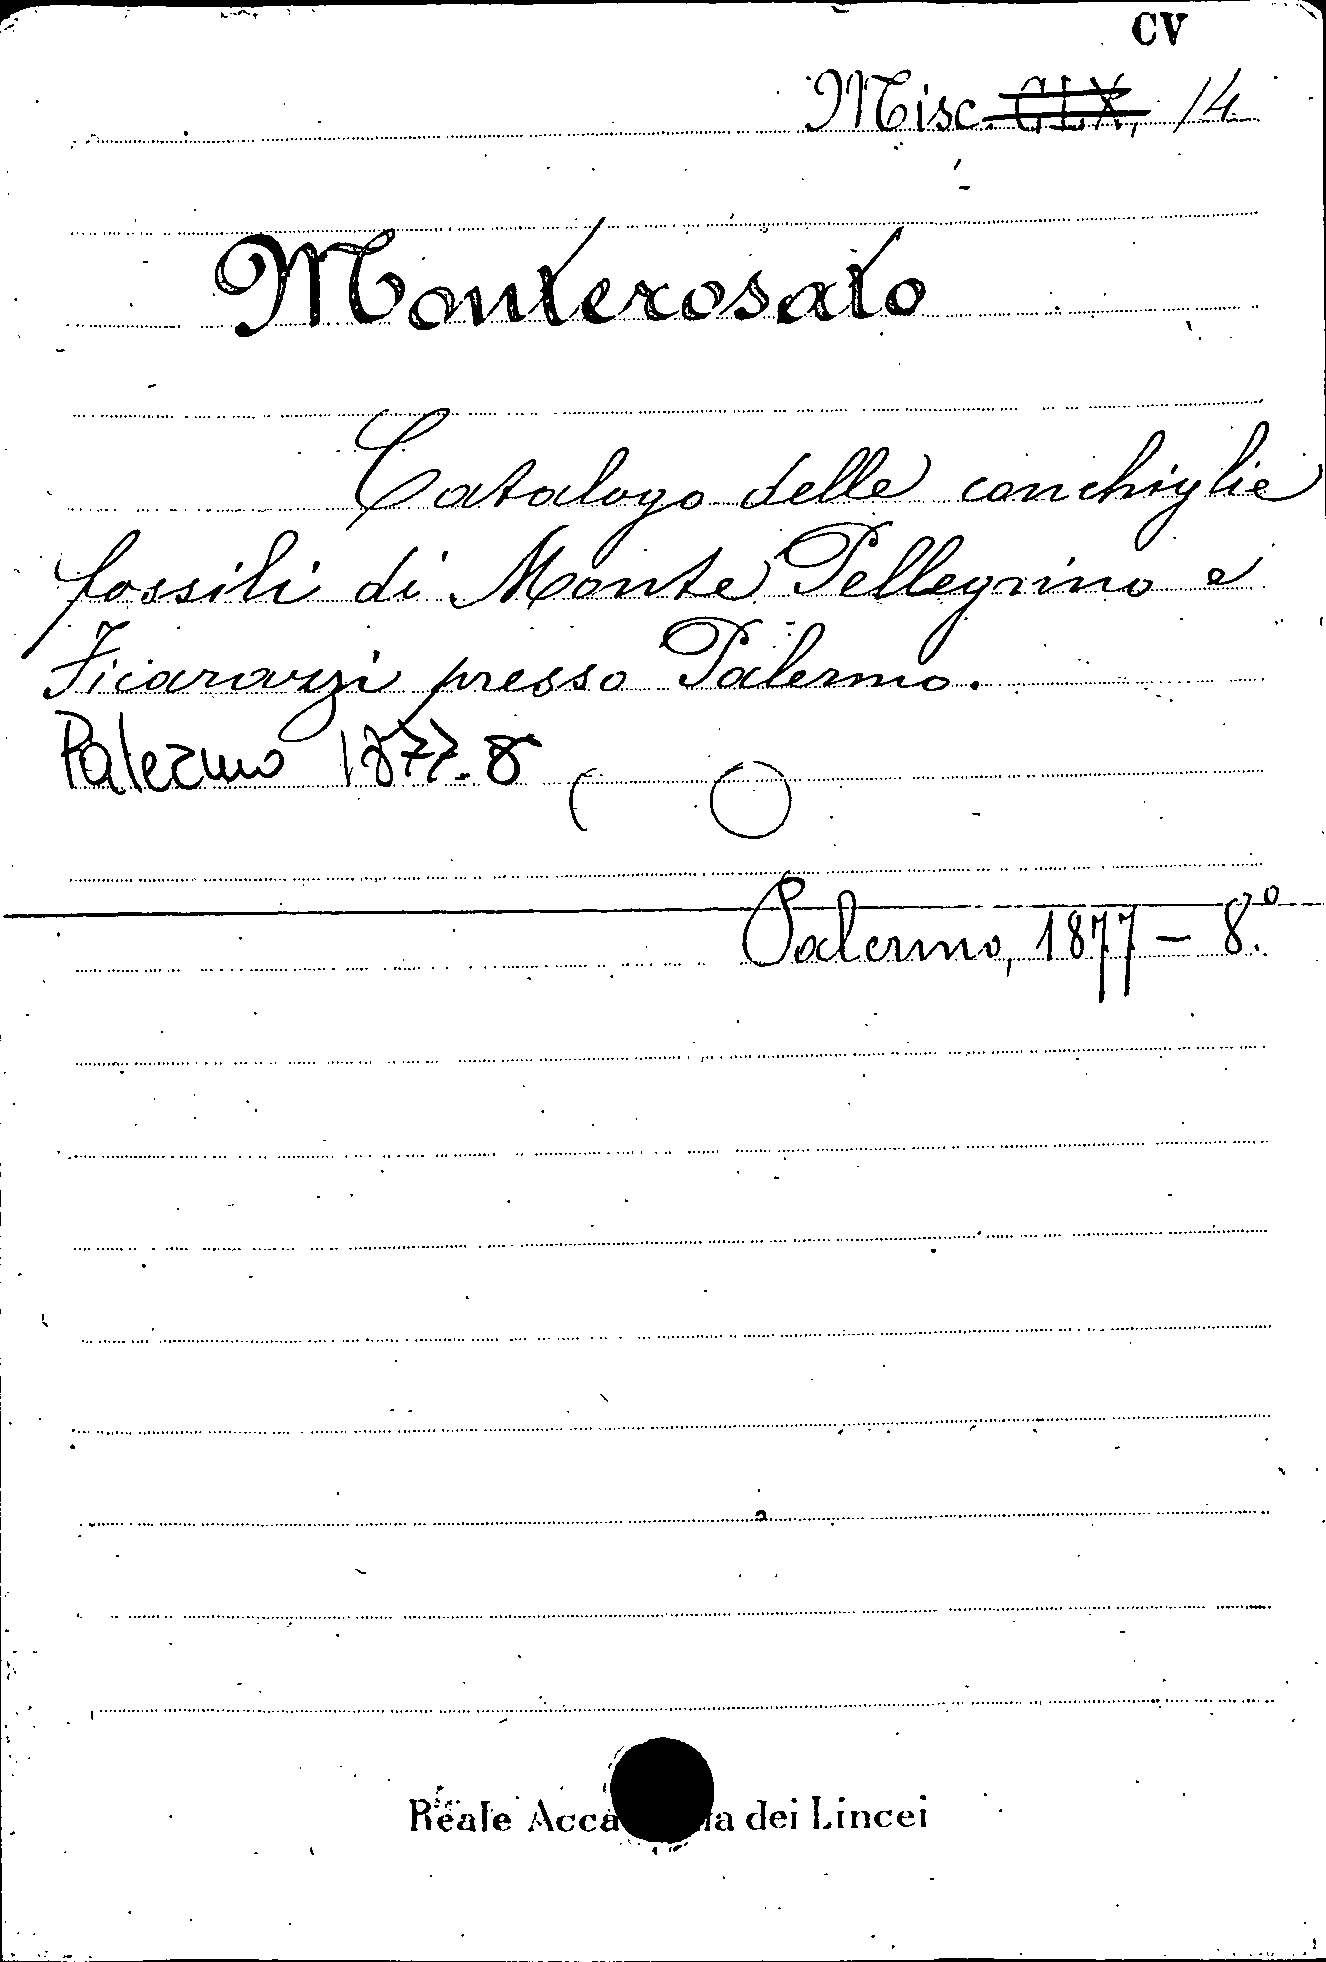 CV
Misc. CLX, 14
Monterosato
Catalogo delle conchiglie
fossili di Monte Pellegrino e
Ficarazzi presso Palermo.
Palermo 1877. 8
Palermo, 1877 – 8.º
Reale Acca ia dei Lincei